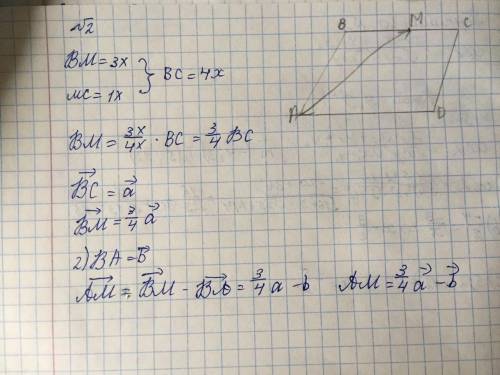 №2
BM=3x
MC=1x } BC=4x
BM = 3x/4x · BC = 3/4 BC
BC→ = a→
BM→ = 3/4 a→
2) BA=b→
AM→ = BM→ - BA→ = 3/4 a - b AM = 3/4 a→ - b→
B M C
A D